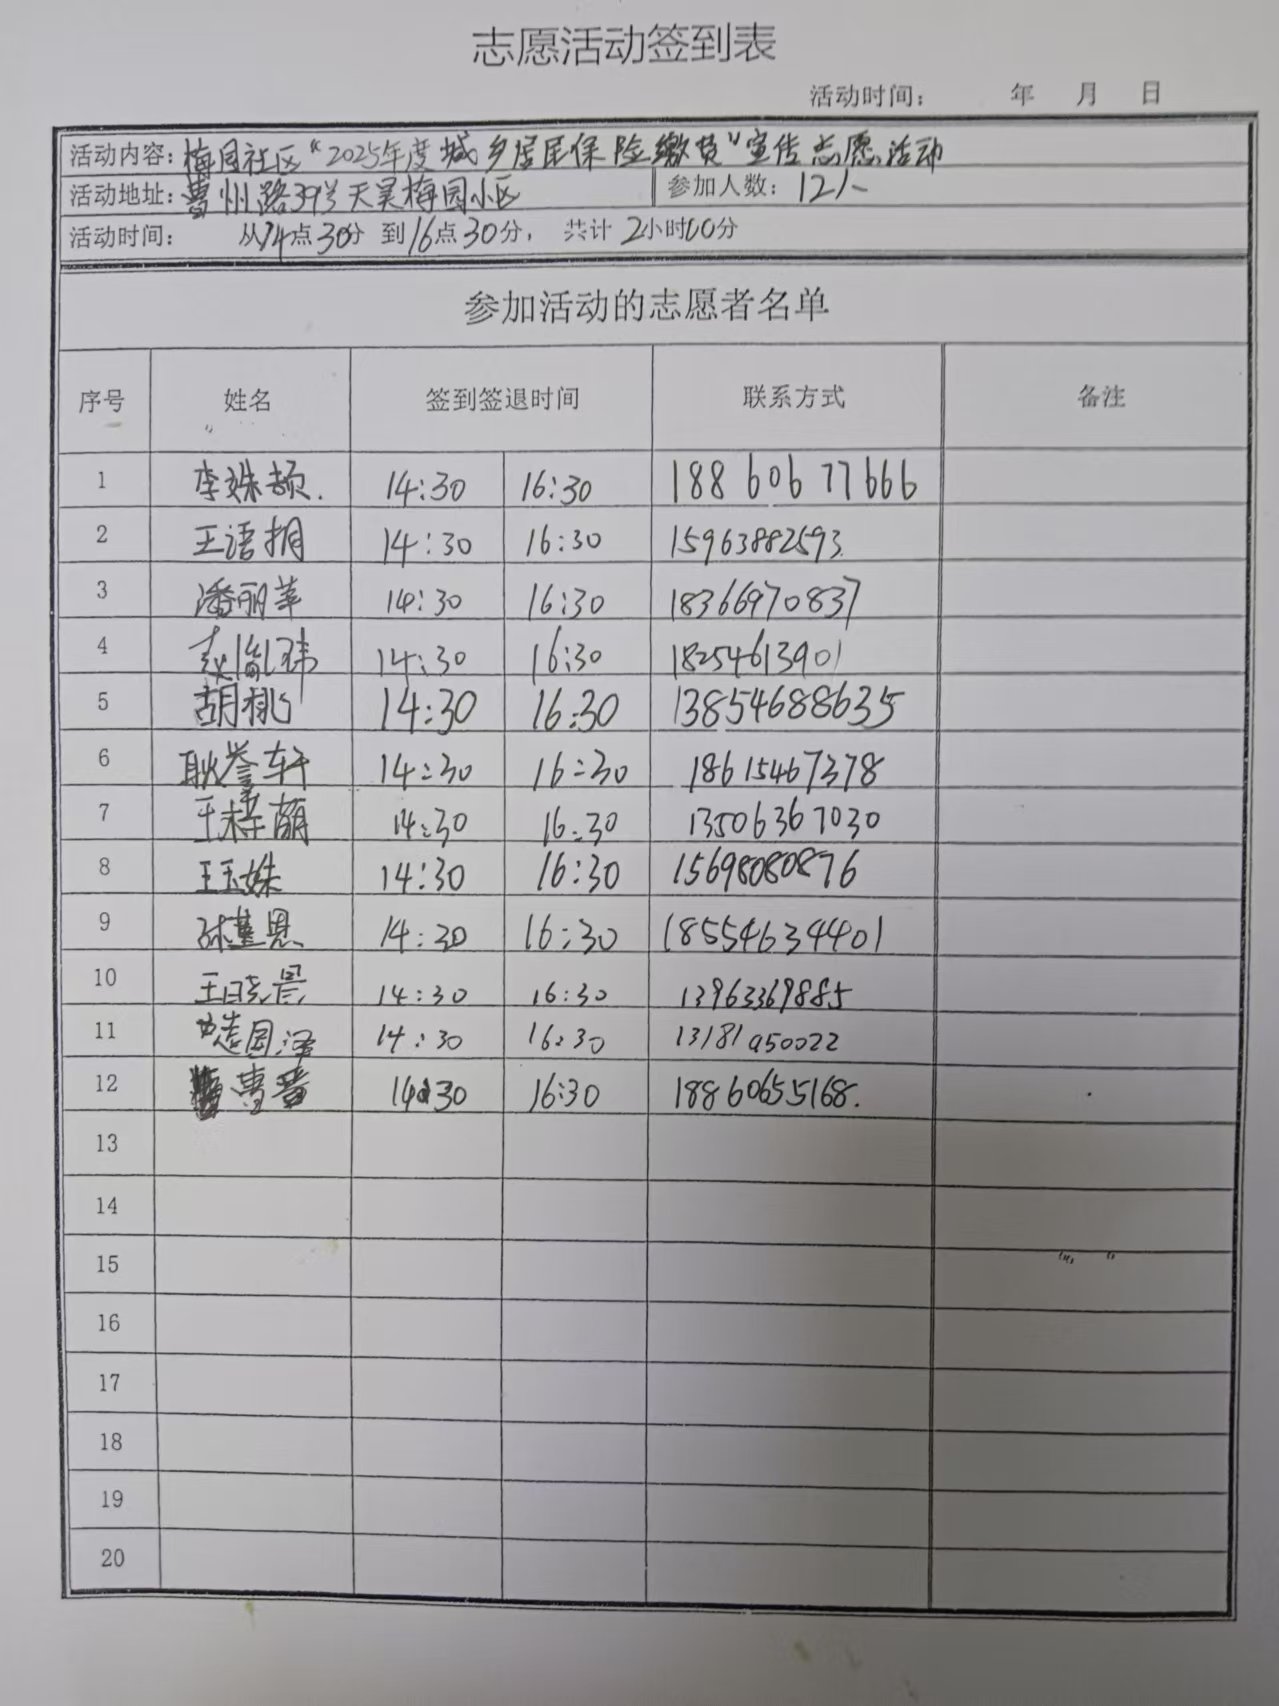 志愿活动签到表
活动时间： 年 月 日
活动内容：梅园社区“2025年度城乡居民保险缴费”宣传志愿活动
活动地址：曹州路39号天昊梅园小区 参加人数：12人
活动时间： 从14点30分 到16点30分， 共计 2小时00分
参加活动的志愿者名单
序号 姓名 签到签退时间 联系方式 备注
1 李姝颉 14:30 16:30 18860677666
2 王语桐 14:30 16:30 15963882593
3 潘丽苹 14:30 16:30 18366970837
4 14:30 16:30 18254613901
5 胡桃 14:30 16:30 13854688635
6 耿誉轩 14:30 16:30 18615467378
7 王梓萌 14:30 16:30 13506367030
8 王玉姝 14:30 16:30 15698080876
9 14:30 16:30 18554634401
10 王晓晨 14:30 16:30 13963369885
11 14:30 16:30 13181950022
12 曹晋 14:30 16:30 18860655168.
13
14
15
16
17
18
19
20